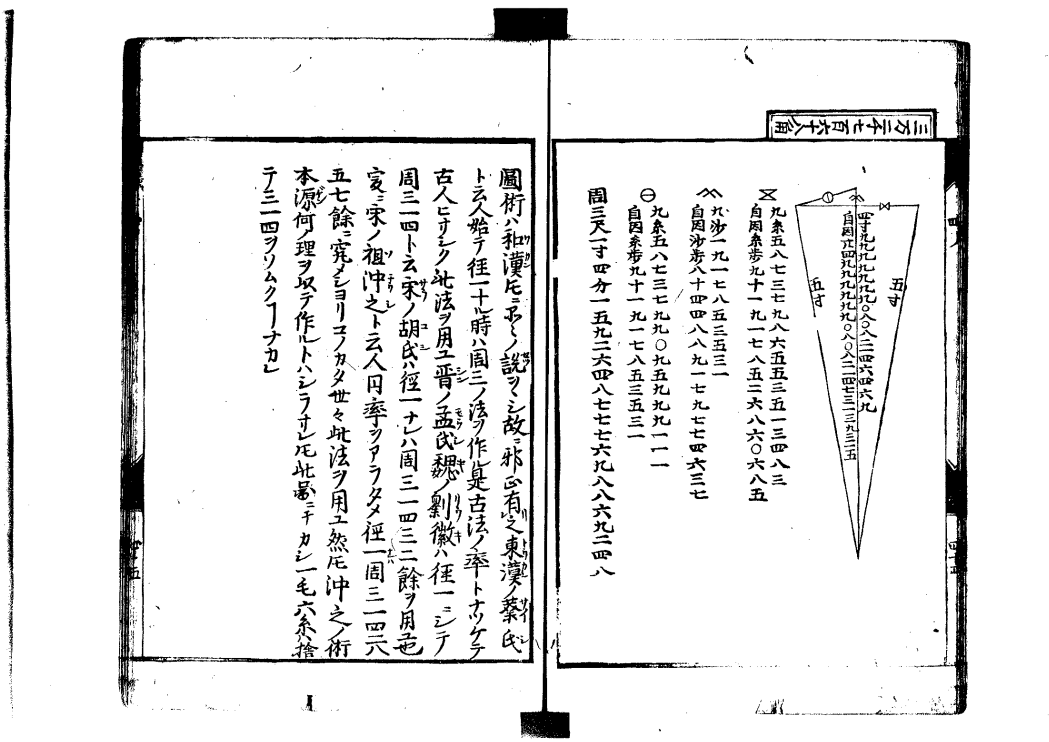 三万二千七百六十八角
四寸九九九九九九九九〇八〇八二二四六四六九
自因廿四九九九九九九九〇八〇八二二四七三一三九三二五
五寸
五寸
九糸五八七三七九八六五五三五一三四八三
自因糸歩九十一九一七八五二六八六〇六八五
九沙一九一七八五三五三一
自因沙歩八十四四八八九一七九七七四六三七
九糸五八七三七九九〇九五九九九一一一
自因糸歩九十一九一七八五三五三一
周三尺一寸四分一五九二六四八七七七六九八八六九二四八
圓術ハ和漢トモニ品〻ノ説ヲヽシ故ニ邪正有之東漢ノ蔡氏
ト云人始テ径一ナル時ハ周三ノ法ヲ作ル是古法ノ率トナヅケテ
古人ヒサシク此法ヲ用ユ晋ノ孟氏魏ノ劉徽ハ径一ニシテ
周三一四ト云宋ノ胡氏ハ径一ナレハ周三一四三二餘ヲ用
宋ノ祖沖之ト云人円率ヲアラタメ徑一周三一四一六
五七餘ニ究メシヨリコノカタ世々此法ヲ用ユ然トモ沖之ノ術
本源何ノ理ヲ以テ作ルトハシラサレトモ此啚ニチカシ一毛六糸ヲ捨
テ三一四ヲソムクコトナカレ